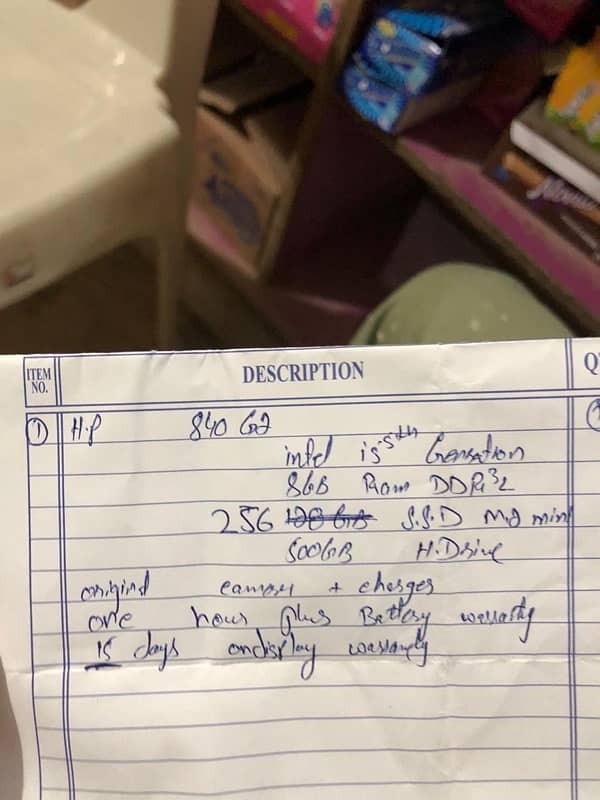 ITEM NO.
DESCRIPTION
Q
① H.P 840 G2
intel i5 5th Genration
8GB Ram DDR3L
256 S.S.D M.2 mini
500GB H.Drive
original + charger
one hour plus Battery warranty
15 days ondisplay warranty